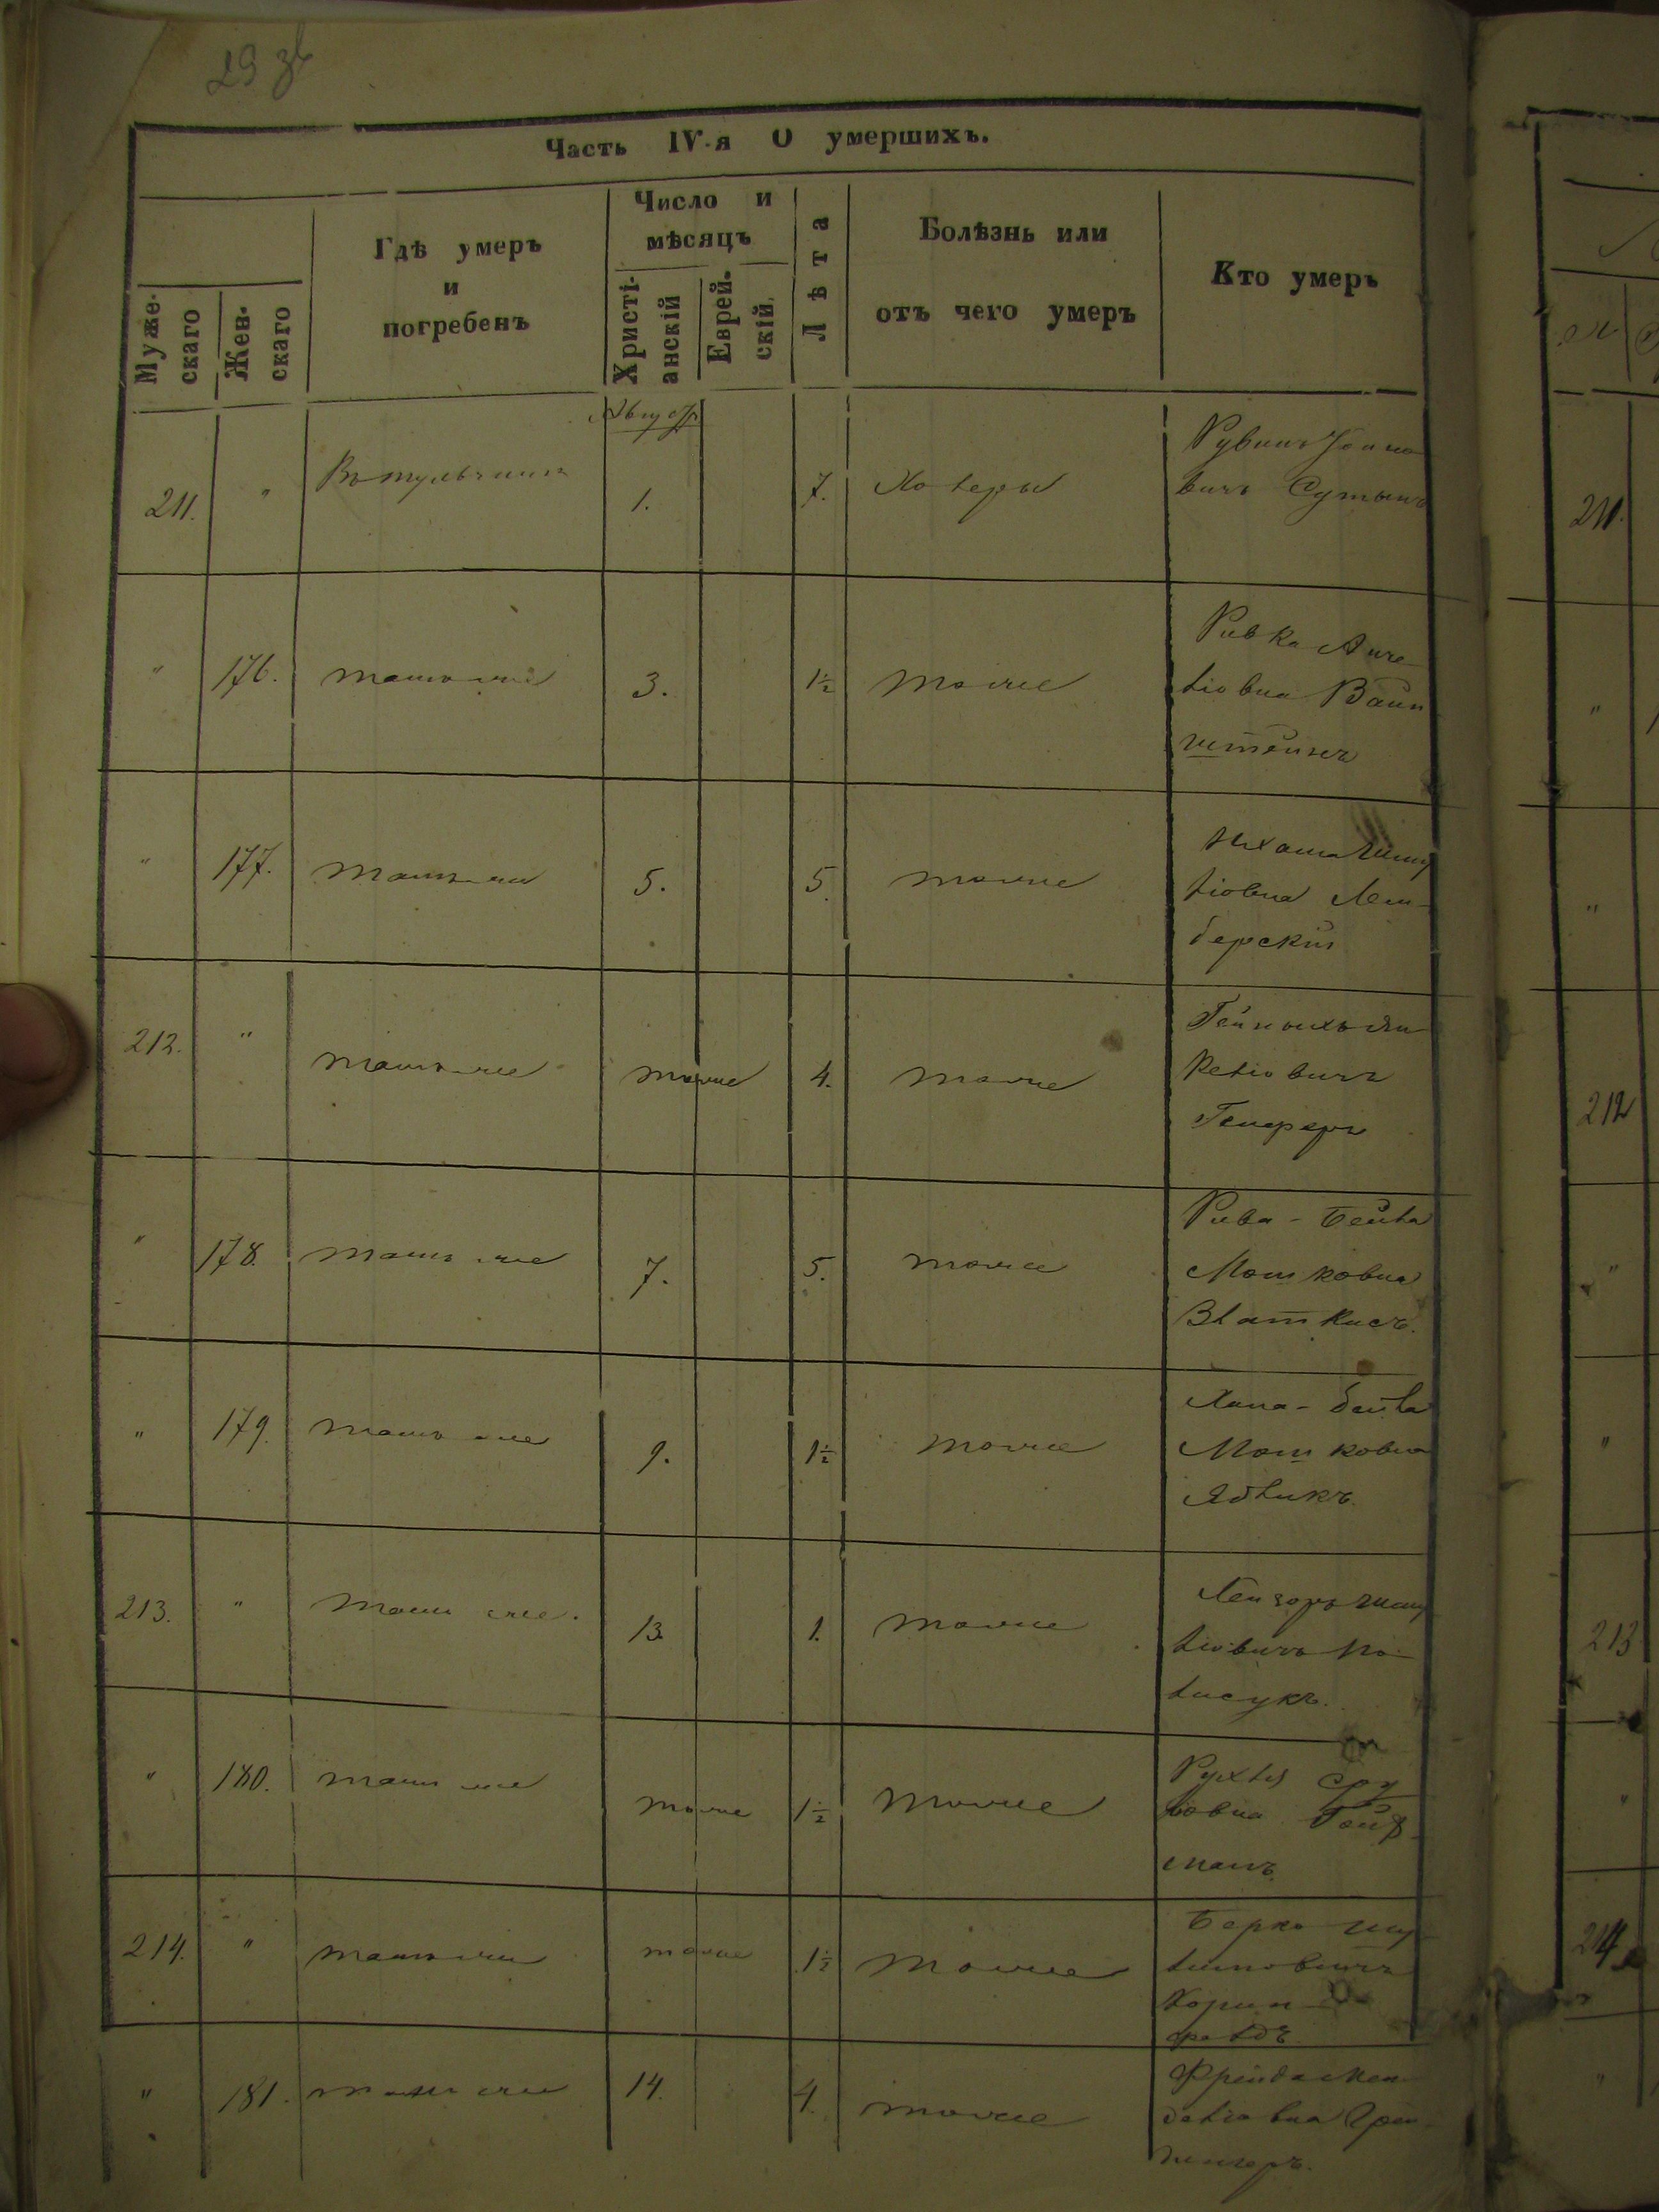 29 зв
Часть IV-я О умершихъ.
Муже-
скаго
Жен-
скаго
Гдѣ умеръ
и
погребенъ
Число и
мѣсяцъ
Христі-
анскій
Еврей-
скій
Лѣта
Болѣзнь или
отъ чего умеръ
Кто умеръ
Августа
211. " Въ Тульчинѣ 1. 7. Холеры Рувинъ
вичъ
" 176. тамъ же 3. 1½ тоже Ривка Анче-
ліовна Вайн
штейнъ
" 177. тамъ же 5. 5. тоже
ліовна Лем-
берскій
212. " тамъ же тоже 4. тоже
келіовичъ
" 178. тамъ же 7. 5. тоже Рива-Бейла
Мошковна
Златкисъ.
" 179. тамъ же 9. 1½ тоже Хана-Бейла
Мошковна
Ябликъ.
213. " тамъ же. 13. 1. тоже Лейзоръ Шму
ліовичъ По-
лисукъ.
" 180. тамъ же тоже 1½ тоже Рухля Сру
ловна Гойф-
манъ
214. " тамъ же тоже 1½ тоже Берко
Корин-
фельдъ
" 181. тамъ же 14. 4. тоже Фрейда Мен-
деліовна
211.
"
"
212
"
"
213
"
214
"